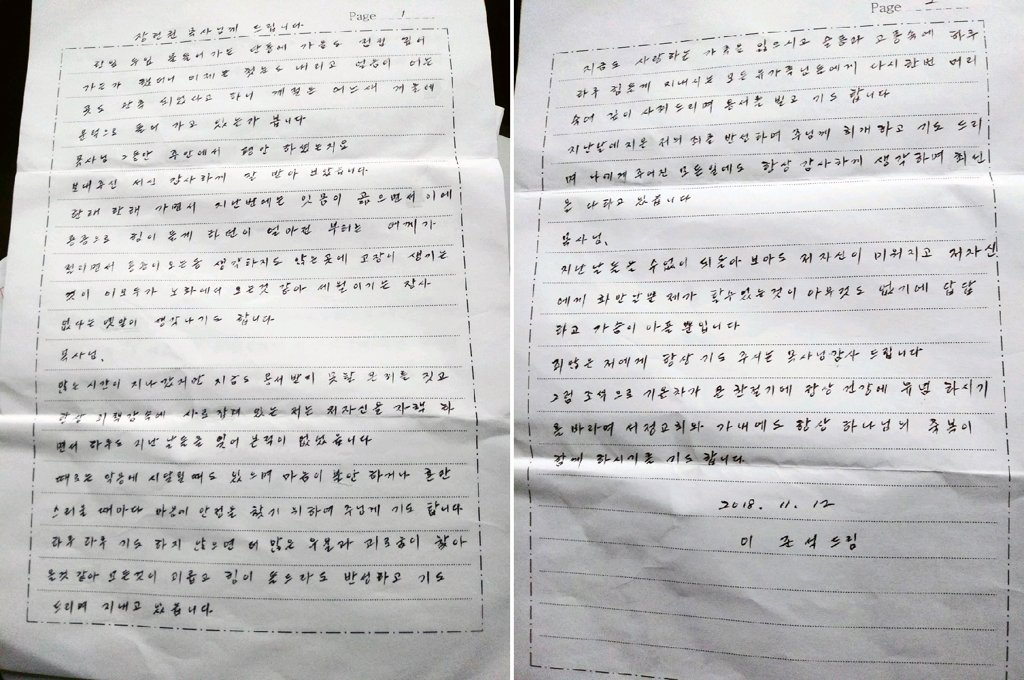 Page 1
장헌권 목사님께 드립니다.
한잎 두잎 물들어가는 단풍에 가을도 점점 깊어
가는가 했더니 이제는 첫눈도 내리고 얼음이 어는
곳도 있다고 하니 계절은 어느새 겨울에
문턱으로 들어 가고 있는가 봅니다
목사님 그동안 주안에서 평안 하셨는지요
보내주신 서신 감사하게 잘 받아 보았습니다.
한해 한해 가면서 지난번에는 잇몸이 곪으면서 이에
통증으로 힘이 들게 하면이 얼마전 부터는 어깨가
결리면서 통증이오는등 생각하지도 않는곳에 고장이 생기는
것이 이모두가 노화에서 오는것 같아 세월이기는 장사
없다는 옛말이 생각나기도 합니다
목사님.
많은 시간이 지나갔지만 지금도 용서받이 못할 큰죄를 짓고
항상 죄책감속에 사로잡혀 있는 저는 저자신을 자책 하
면서 하루도 지난 날들을 잊어 본적이 없었습니다
때로는 악몽에 시달릴때도 있으며 마음이 불안 하거나 혼란
스러울 때마다 마음에 안정을 찾기 위하여 주님께 기도 합니다
하루 하루 기도 하지 않으면 더 많은 우울과 괴로움이 찾아
온것 같아 모든것이 괴롭고 힘이 들드라도 반성하고 기도
드리며 지내고 있습니다
Page 2
지금도 사랑하는 가족을 잃으시고 슬픔과 고통속에 하루
하루 힘들게 지내시는 모든 유가족님들에게 다시한번 머리
숙여 깊이 사죄드리며 용서을 빌고 기도 합니다
지난날에지은 저의 죄를 반성하며 주님께 회개하고 기도 드리
며 나에게 주어진 모든일에도 항상 감사하게 생각하며 최선
은 다하고 있습니다
목사님.
지난날들을 수없이 되돌아 보아도 저 자신이 미워지고 저자신
에게 화만난뿐 제가 할수있는것이 아무것도 없기에 답답
하고 가슴이 아플 뿐입니다
죄많은 저에게 항상 기도 주시는 목사님감사 드립니다
그럼 조석으로 기온차가 큰 환절기에 항상 건강에 유념 하시기
를바라며 서정교회와 가내에도 항상 하나님의 축복이
함께 하시기를 기도 합니다
2018. 11. 12
이 준 석 드림